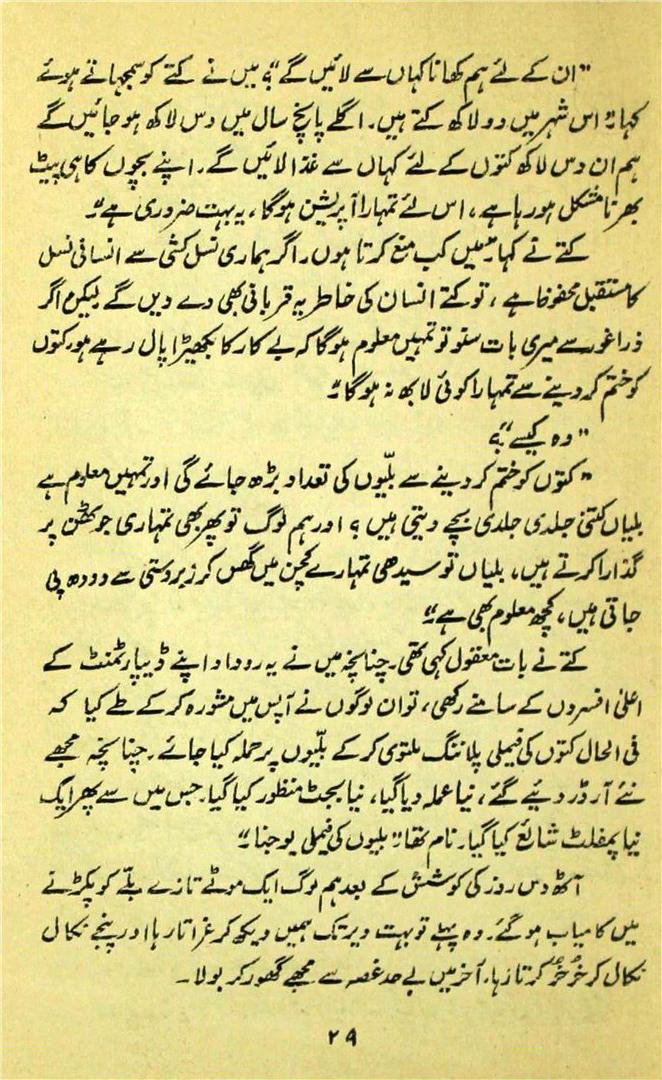 "ان کے لئے ہم کھانا کہاں سے لائیں گے"؟ میں نے کتے کو سمجھاتے ہوئے
کہا" اس شہر میں دو لاکھ کتے ہیں۔ اگلے پانچ سال میں دس لاکھ ہو جائیں گے
ہم ان دس لاکھ کتوں کے لئے کہاں سے غذا لائیں گے۔ اپنے بچوں کا ہی پیٹ
بھرنا مشکل ہو رہا ہے، اس لئے تمہارا آپریشن ہوگا، یہ بہت ضروری ہے"۔
کتے نے کہا "میں کب منع کرتا ہوں۔ اگر ہماری نسل کشی سے انسانی نسل
کا مستقبل محفوظ ہے، تو کتے انسان کی خاطر یہ قربانی بھی دے دیں گے لیکن اگر
ذرا غور سے میری بات سنو تو تمہیں معلوم ہوگا کہ بے کار کا بکھیڑا پال رہے ہو، کتوں
کو ختم کر دینے سے تمہارا کوئی لابھ نہ ہوگا"۔
"وہ کیسے"؟
"کتوں کو ختم کر دینے سے بلّیوں کی تعداد بڑھ جائے گی اور تمہیں معلوم ہے
بلیاں کتنی جلدی جلدی بچے دیتی ہیں؟ اور ہم لوگ تو پھر بھی تمہاری جوٹھن پر
گذارا کرتے ہیں، بلیاں تو سیدھی تمہارے کچن میں گھس کر زبردستی سے دودھ پی
جاتی ہیں، کچھ معلوم بھی ہے"۔
کتے نے بات معقول کہی تھی۔ چنانچہ میں نے یہ روداد اپنے ڈیپارٹمنٹ کے
اعلیٰ افسروں کے سامنے رکھی، تو ان لوگوں نے آپس میں مشورہ کر کے طے کیا کہ
فی الحال کتوں کی فیملی پلاننگ ملتوی کر کے بلّیوں پر حملہ کیا جائے۔ چنانچہ مجھے
نئے آرڈر دیئے گئے، نیا عملہ دیا گیا، نیا بجٹ منظور کیا گیا۔ جس میں سے پھر ایک
نیا پمفلٹ شائع کیا گیا۔ نام تھا" بلیوں کی فیملی یوجنا"۔
آٹھ دس روز کی کوشش کے بعد ہم لوگ ایک موٹے تازے بلّے کو پکڑنے
میں کامیاب ہو گئے۔ وہ پہلے تو بہت دیر تک ہمیں دیکھ کر غراتا رہا اور پنجے نکال
نکال کر خُرخُر کرتا رہا۔ آخر میں بے حد غصہ سے مجھے گھور کر بولا۔
۲۹